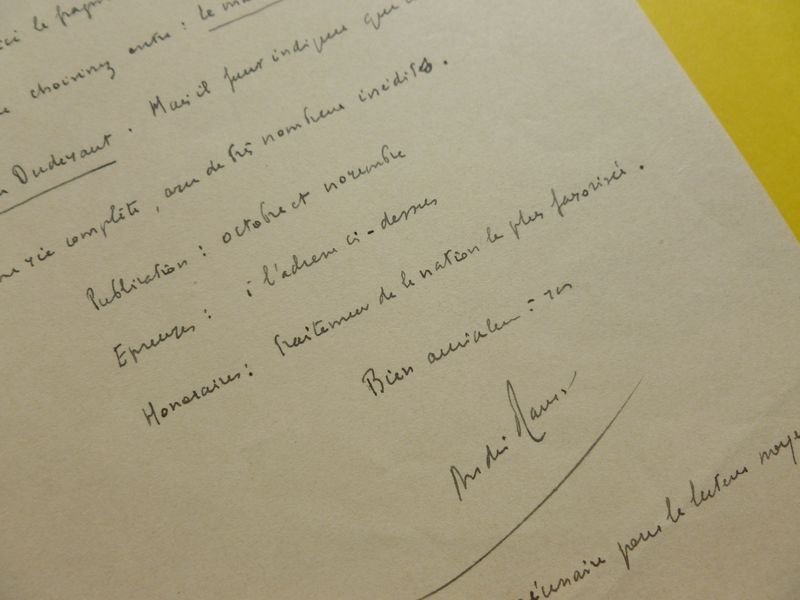 ici le
choisirez entre : le
Dudevant. Mais il faut indiquer que
vie complète, avec de très nombreux inédits.
Publication : octobre et novembre
Epreuves : à l'adresse ci-dessus
Honoraires : Traitement de la nation la plus favorisée.
Bien amicalement vôtre
André Maurois
pour le lecteur moyen